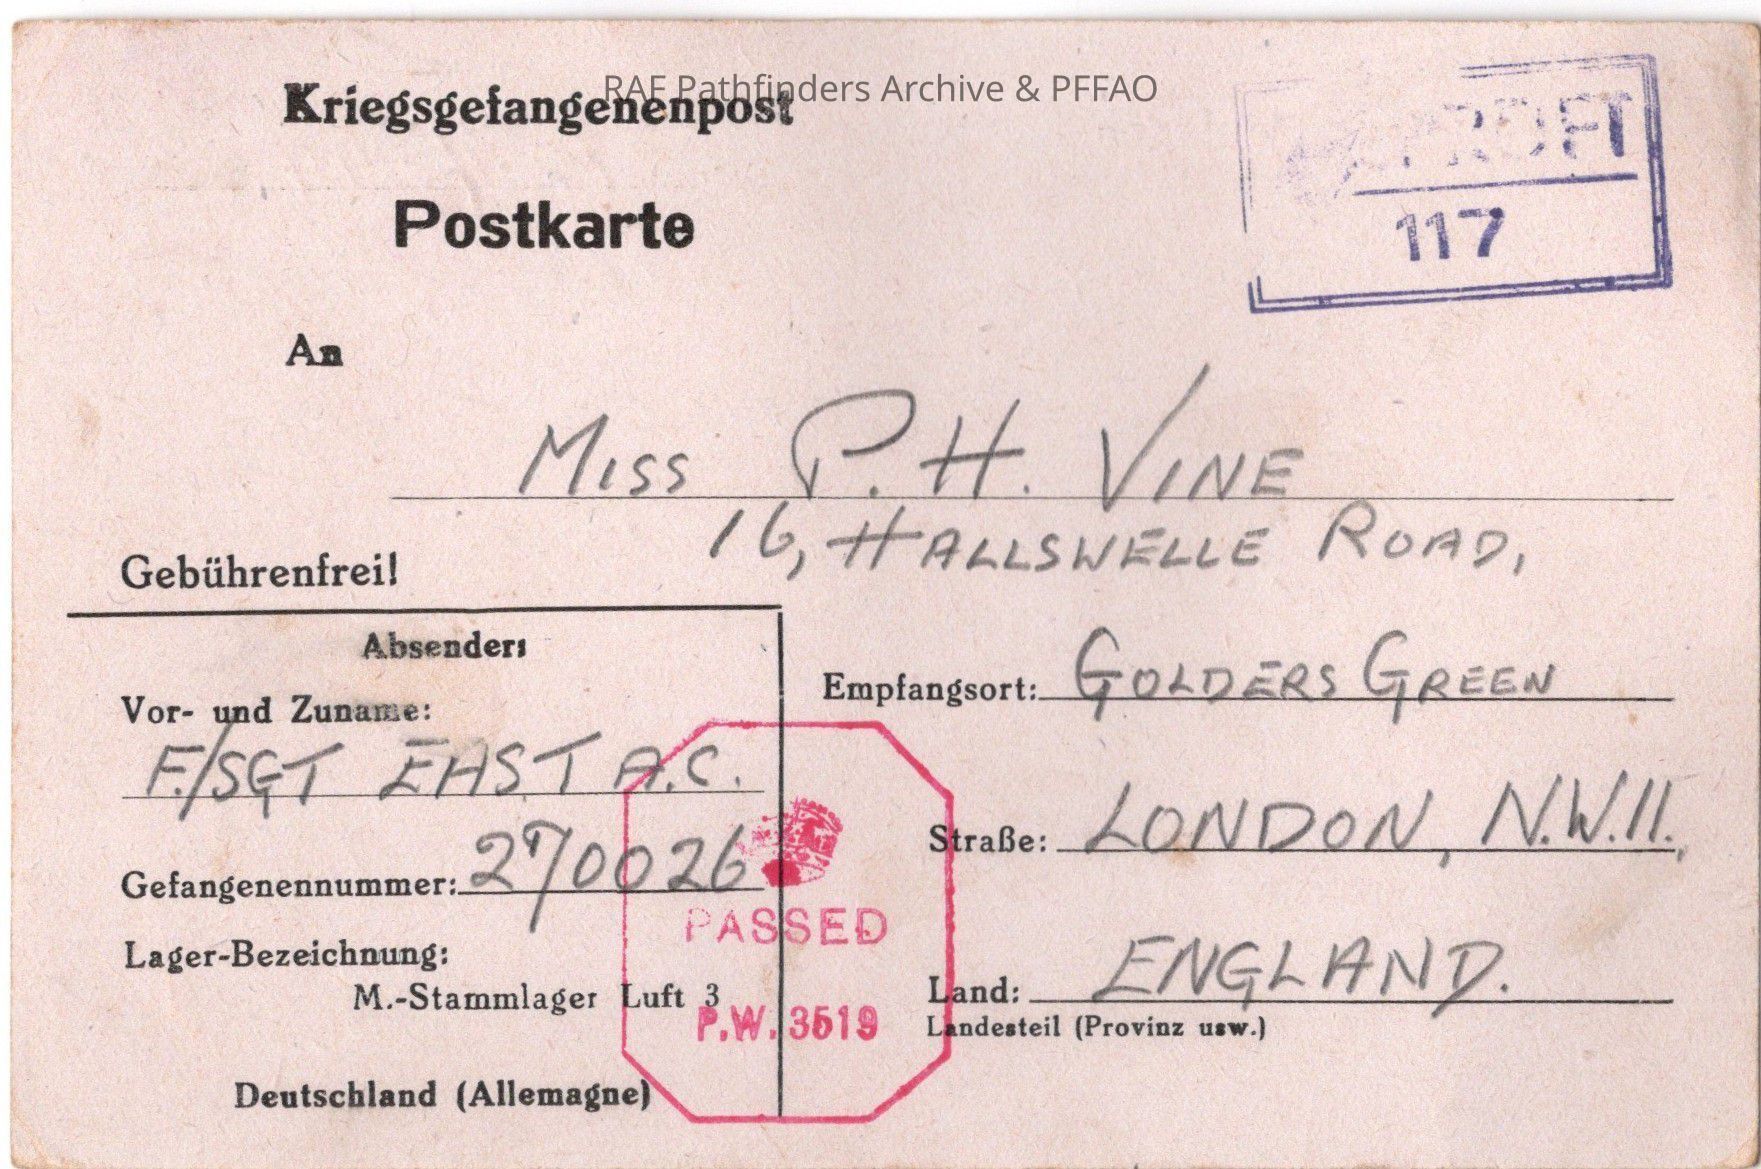 RAF Pathfinders Archive & PFFAO
Kriegsgefangenenpost
Postkarte
117
An
Miss P. H. VINE
16, HALLSWELLE ROAD,
Gebührenfrei!
Absender:
Vor- und Zuname:
F/SGT EAST A.C.
Gefangenennummer: 270026
Lager-Bezeichnung:
M.-Stammlager Luft 3
Deutschland (Allemagne)
Empfangsort: GOLDERS GREEN
Straße: LONDON, N.W.11.
Land: ENGLAND.
Landesteil (Provinz usw.)
PASSED
P.W. 3519